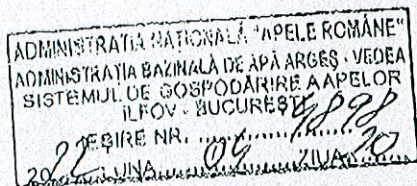 ADMINISTRAȚIA NAȚIONALĂ "APELE ROMÂNE"
ADMINISTRAȚIA BAZINALĂ DE APĂ ARGEȘ - VEDEA
SISTEMUL DE GOSPODĂRIRE A APELOR
ILFOV - BUCUREȘTI
IEȘIRE NR. 4898
2022 LUNA 04 ZIUA 20